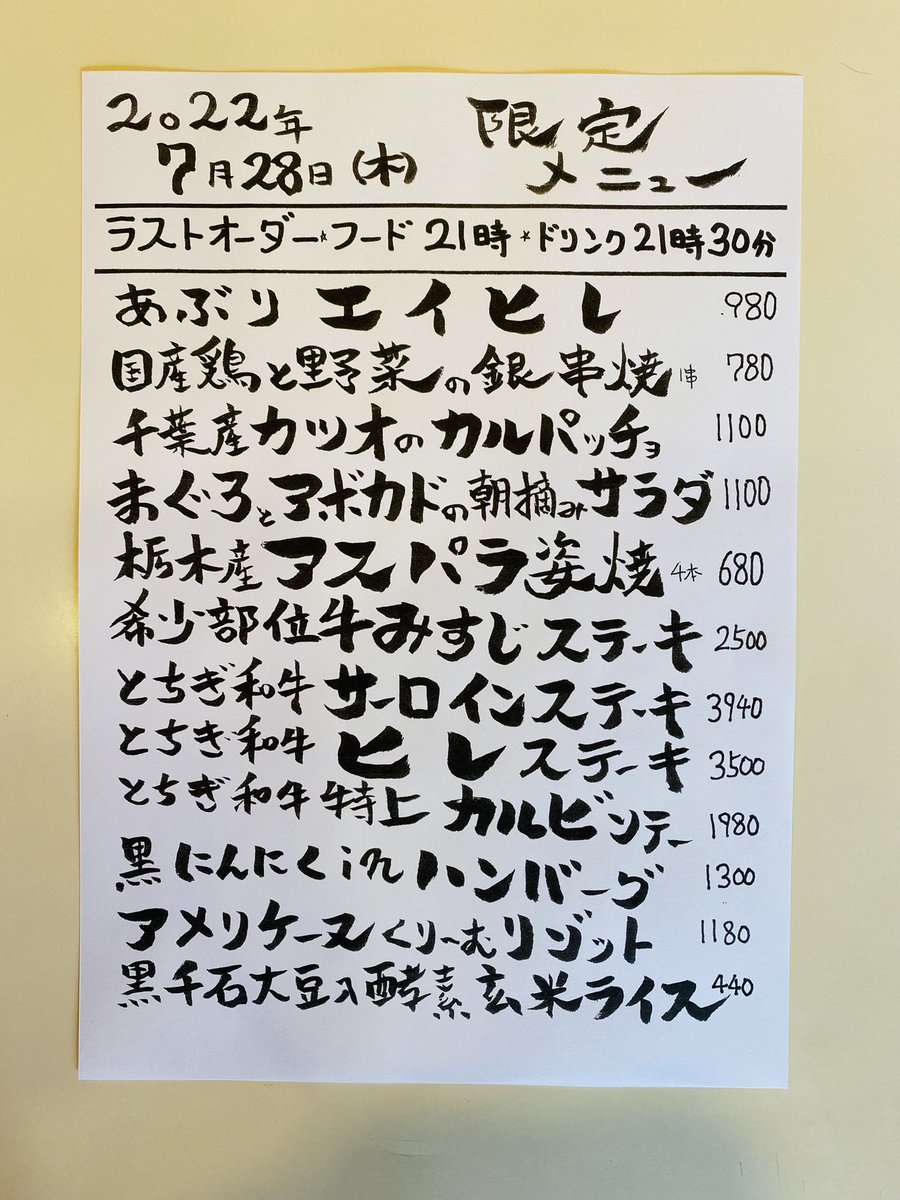 2022年 限定
7月28日(木) メニュー
ラストオーダー*フード21時*ドリンク21時30分
あぶりエイヒレ 980
国産鶏と野菜の銀串焼 1串 780
千葉産カツオのカルパッチョ 1100
まぐろとアボカドの朝摘みサラダ 1100
栃木産アスパラ姿焼 4本 680
希少部位牛みすじステーキ 2500
とちぎ和牛サーロインステーキ 3940
とちぎ和牛ヒレステーキ 3500
とちぎ和牛特上カルビソテー 1980
黒にんにくinハンバーグ 1300
アメリケーヌくりーむリゾット 1180
黒千石大豆入酵素玄米ライス 440